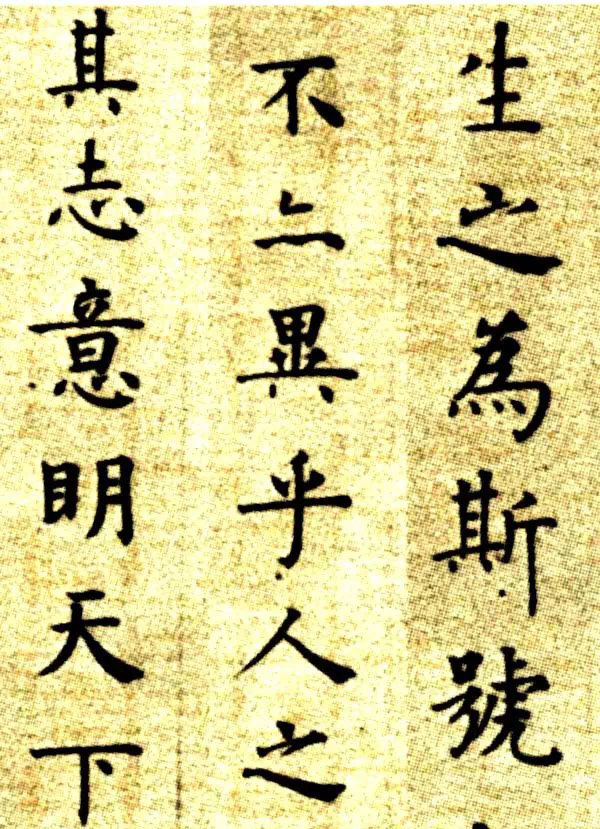 生之為斯號
不異乎人之
其志意眀天下